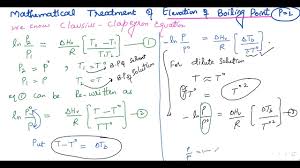 Mathematical Treatment of Elevation of Boiling Point P=2
we know Clausius - Clapeyron Equation
ln P₂/P₁ = ΔHv/R [T₂ - T₁ / T₁T₂] —①
P₂ = P T₂ = T
P₁ = P° T₁ = T°
eqn ① can be Re-written as
ln P/P° = ΔHv/R [T - T° / TT°] —②
Put T - T° = ΔTb
ln P/P° = ΔHv/R [ΔTb / TT°]
For dilute Solution
T ≈ T°
TT° = T°²
- ln P/P° = ΔHv/R [ΔTb / T°²] —③
P/P° =